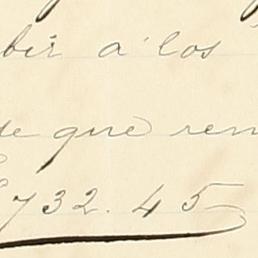 bir á los
de que ren
732.45